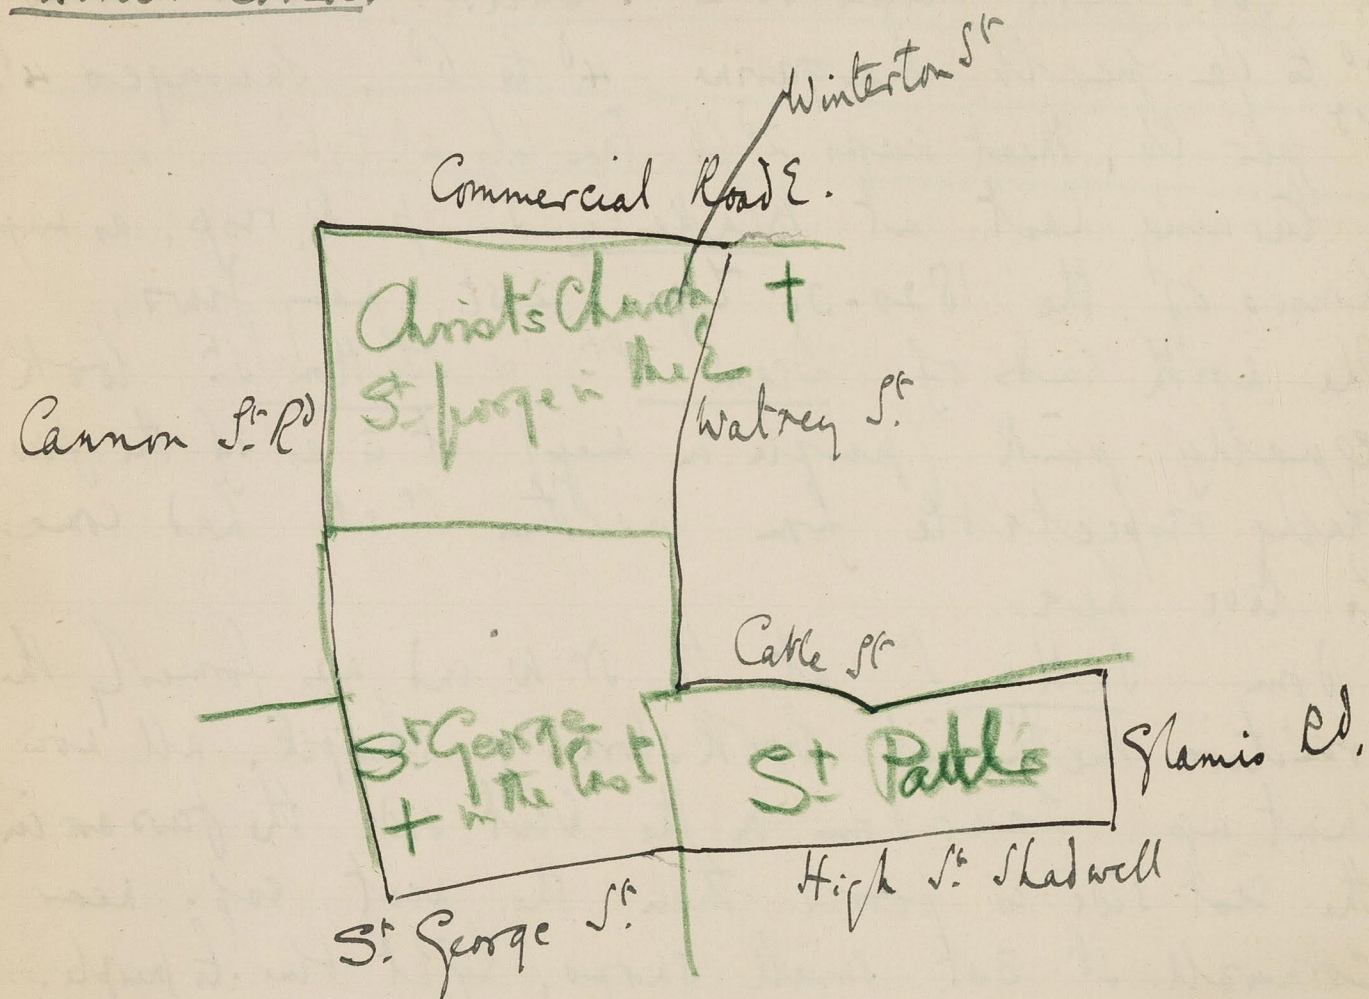 Winterton St
Commercial Road E.
Christ's Church
St George in the E
Cannon St. Rd
Watney St.
Cable St
St George
in the East
St Paul's
Glamis Rd.
High St. Shadwell
St. George St.